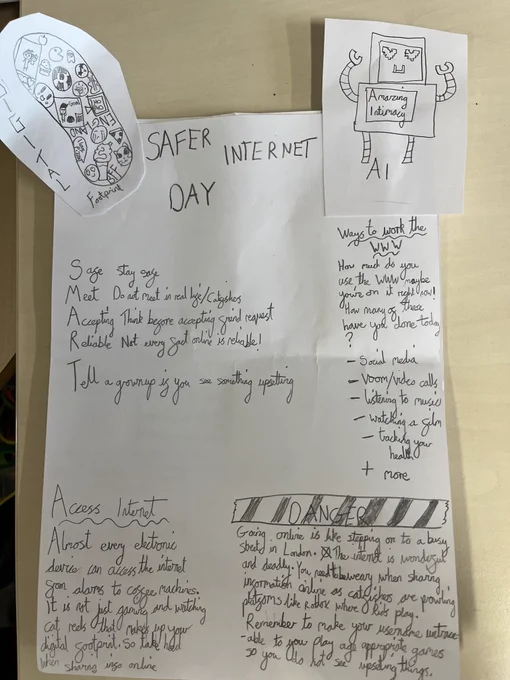 DIGITAL
Footprint
SAFER INTERNET
DAY
Amazing
Intimacy
AI
Safe stay safe
Meet Do not meet in real life/Catfishers
Accepting Think before accepting frind request
Reliable Not every fact online is reliable!
Tell a grownup if you see something upsetting
Ways to work the
WWW
How much do you
use the WWW maybe
you're on it right now!
How many of these
have you done today
?
- Social media
- Voom/video calls
- listening to music
- watching a film
- tracking your
health
+ more
Access Internet
Almost every electronic
device can access the internet
from alarms to coffee machines.
It is not just gaming and watching
cat reels that makes up your
digital footprint. So take heed
when sharing info online
DANGER
Going online is like stepping on to a busy
street in London. The internet is wonderful
and deadly. You need to be weary when sharing
information online as catfishers are prowling
platforms like Roblox where kids play.
Remember to make your username untrace
-able to you play age appropriate games
so you do not see upsetting things.